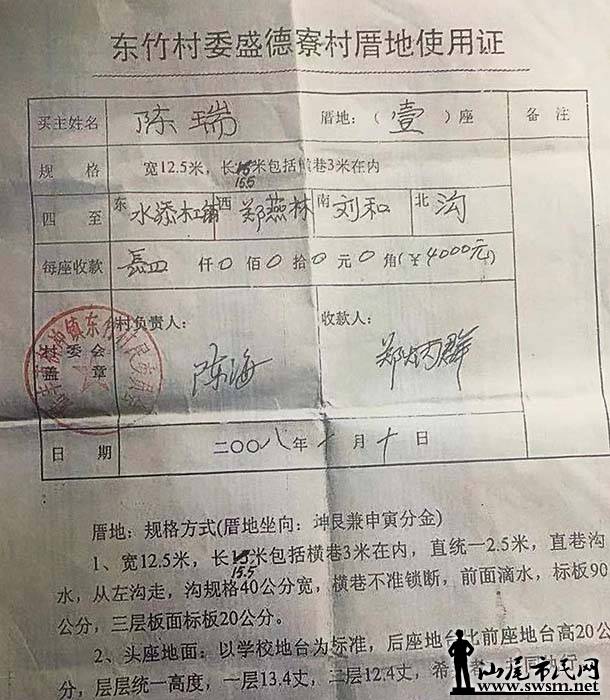 东竹村委盛德寮村厝地使用证
买主姓名 陈瑞 厝地：（壹）座 备注
规格 宽12.5米，长15米包括横巷3米在内
15.5
四至 东 水添 西 郑燕林 南 刘和 北 沟
每座收款 四仟0佰0拾0元0角(￥4000元)
村委会盖章 村负责人： 收款人：
陈海 郑炳群
日期 二〇〇八年十月十日
厝地：规格方式(厝地坐向：坤艮兼申寅分金)
1、宽12.5米，长15米包括横巷3米在内，直统一2.5米，直巷沟
15.5
水，从左沟走，沟规格40公分宽，横巷不准锁断，前面滴水，标板90
公分，三层板面标板20公分。
2、头座地面：以学校地台为标准，后座地台比前座地台高20公
分，层层统一高度，一层13.4丈，三层12.4丈，希
汕尾市民网
www.swsm.net